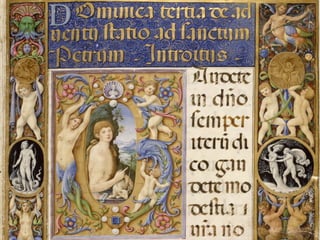 Dominica tertia de ad
uentu statio ad sanctum
Petrum Introitus
Audete
in dño
semper
iterũ di
co gau
dete mo
destia
nr̃a no